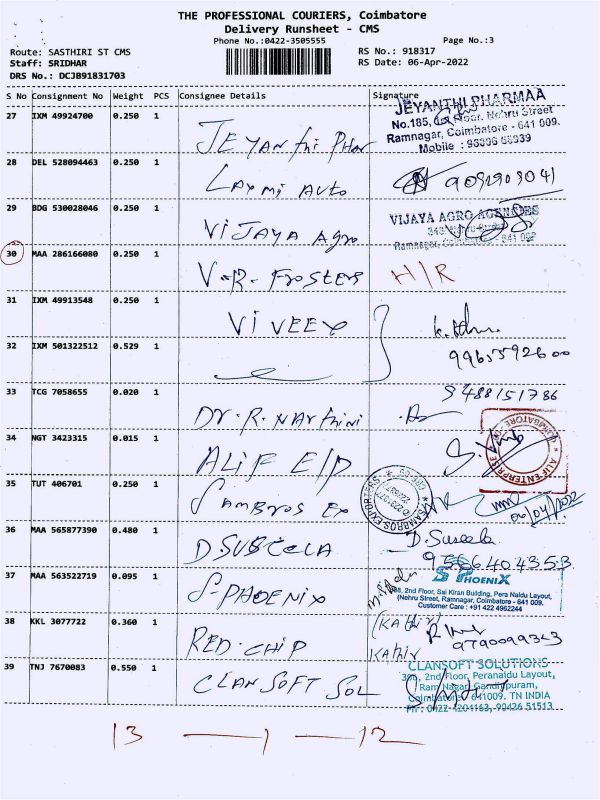 THE PROFESSIONAL COURIERS, Coimbatore
Delivery Runsheet - CMS
Phone No.:0422-3505555
Page No.:3
Route: SASTHIRI ST CMS
Staff: SRIDHAR
DRS No.: DCJB91831703
RS No.: 918317
RS Date: 06-Apr-2022
S No Consignment No Weight PCS Consignee Details Signature
27 IXM 49924700 0.250 1
JEYANTHI PHARMAA
No.185, Floor, Nehru Street
Ramnagar, Coimbatore - 641 009.
Mobile :
28 DEL 528094463 0.250 1
Laxmi Auto
29 BDG 530028046 0.250 1
Vijaya Agro
VIJAYA AGRO AGENCIES
Ramnagar,
30 MAA 286166080 0.250 1
V-R- Fosters H/R
31 IXM 49913548 0.250 1
32 IXM 501322512 0.529 1
33 TCG 7058655 0.020 1
9488151786
Dr. R. Narthini
34 NGT 3423315 0.015 1
ALIF E/P
ALIF ENTERPRISE
35 TUT 406701 0.250 1
Sambros Ex
06/04/2022
36 MAA 565877390 0.480 1
D. SUSEELA
D. Suseela
9566404353
37 MAA 563522719 0.095 1
S-PHOENIX
S PHOENIX
2nd Floor, Sai Kiran Building, Pera Naidu Layout,
(Nehru Street, Ramnagar, Coimbatore - 641 009.
Customer Care : +91 422 4962244
38 KKL 3077722 0.360 1
RED CHIP
(Kathir)
Kathir
9790099343
39 TNJ 7670083 0.550 1
CLANSOFT SOL
CLANSOFT SOLUTIONS
2nd Floor, Peranaidu Layout,
Ram Nagar, Gandhipuram,
Coimbatore - 641009. TN INDIA
Ph : 0422-4204163, 90426 51513
13 — 1 — 12